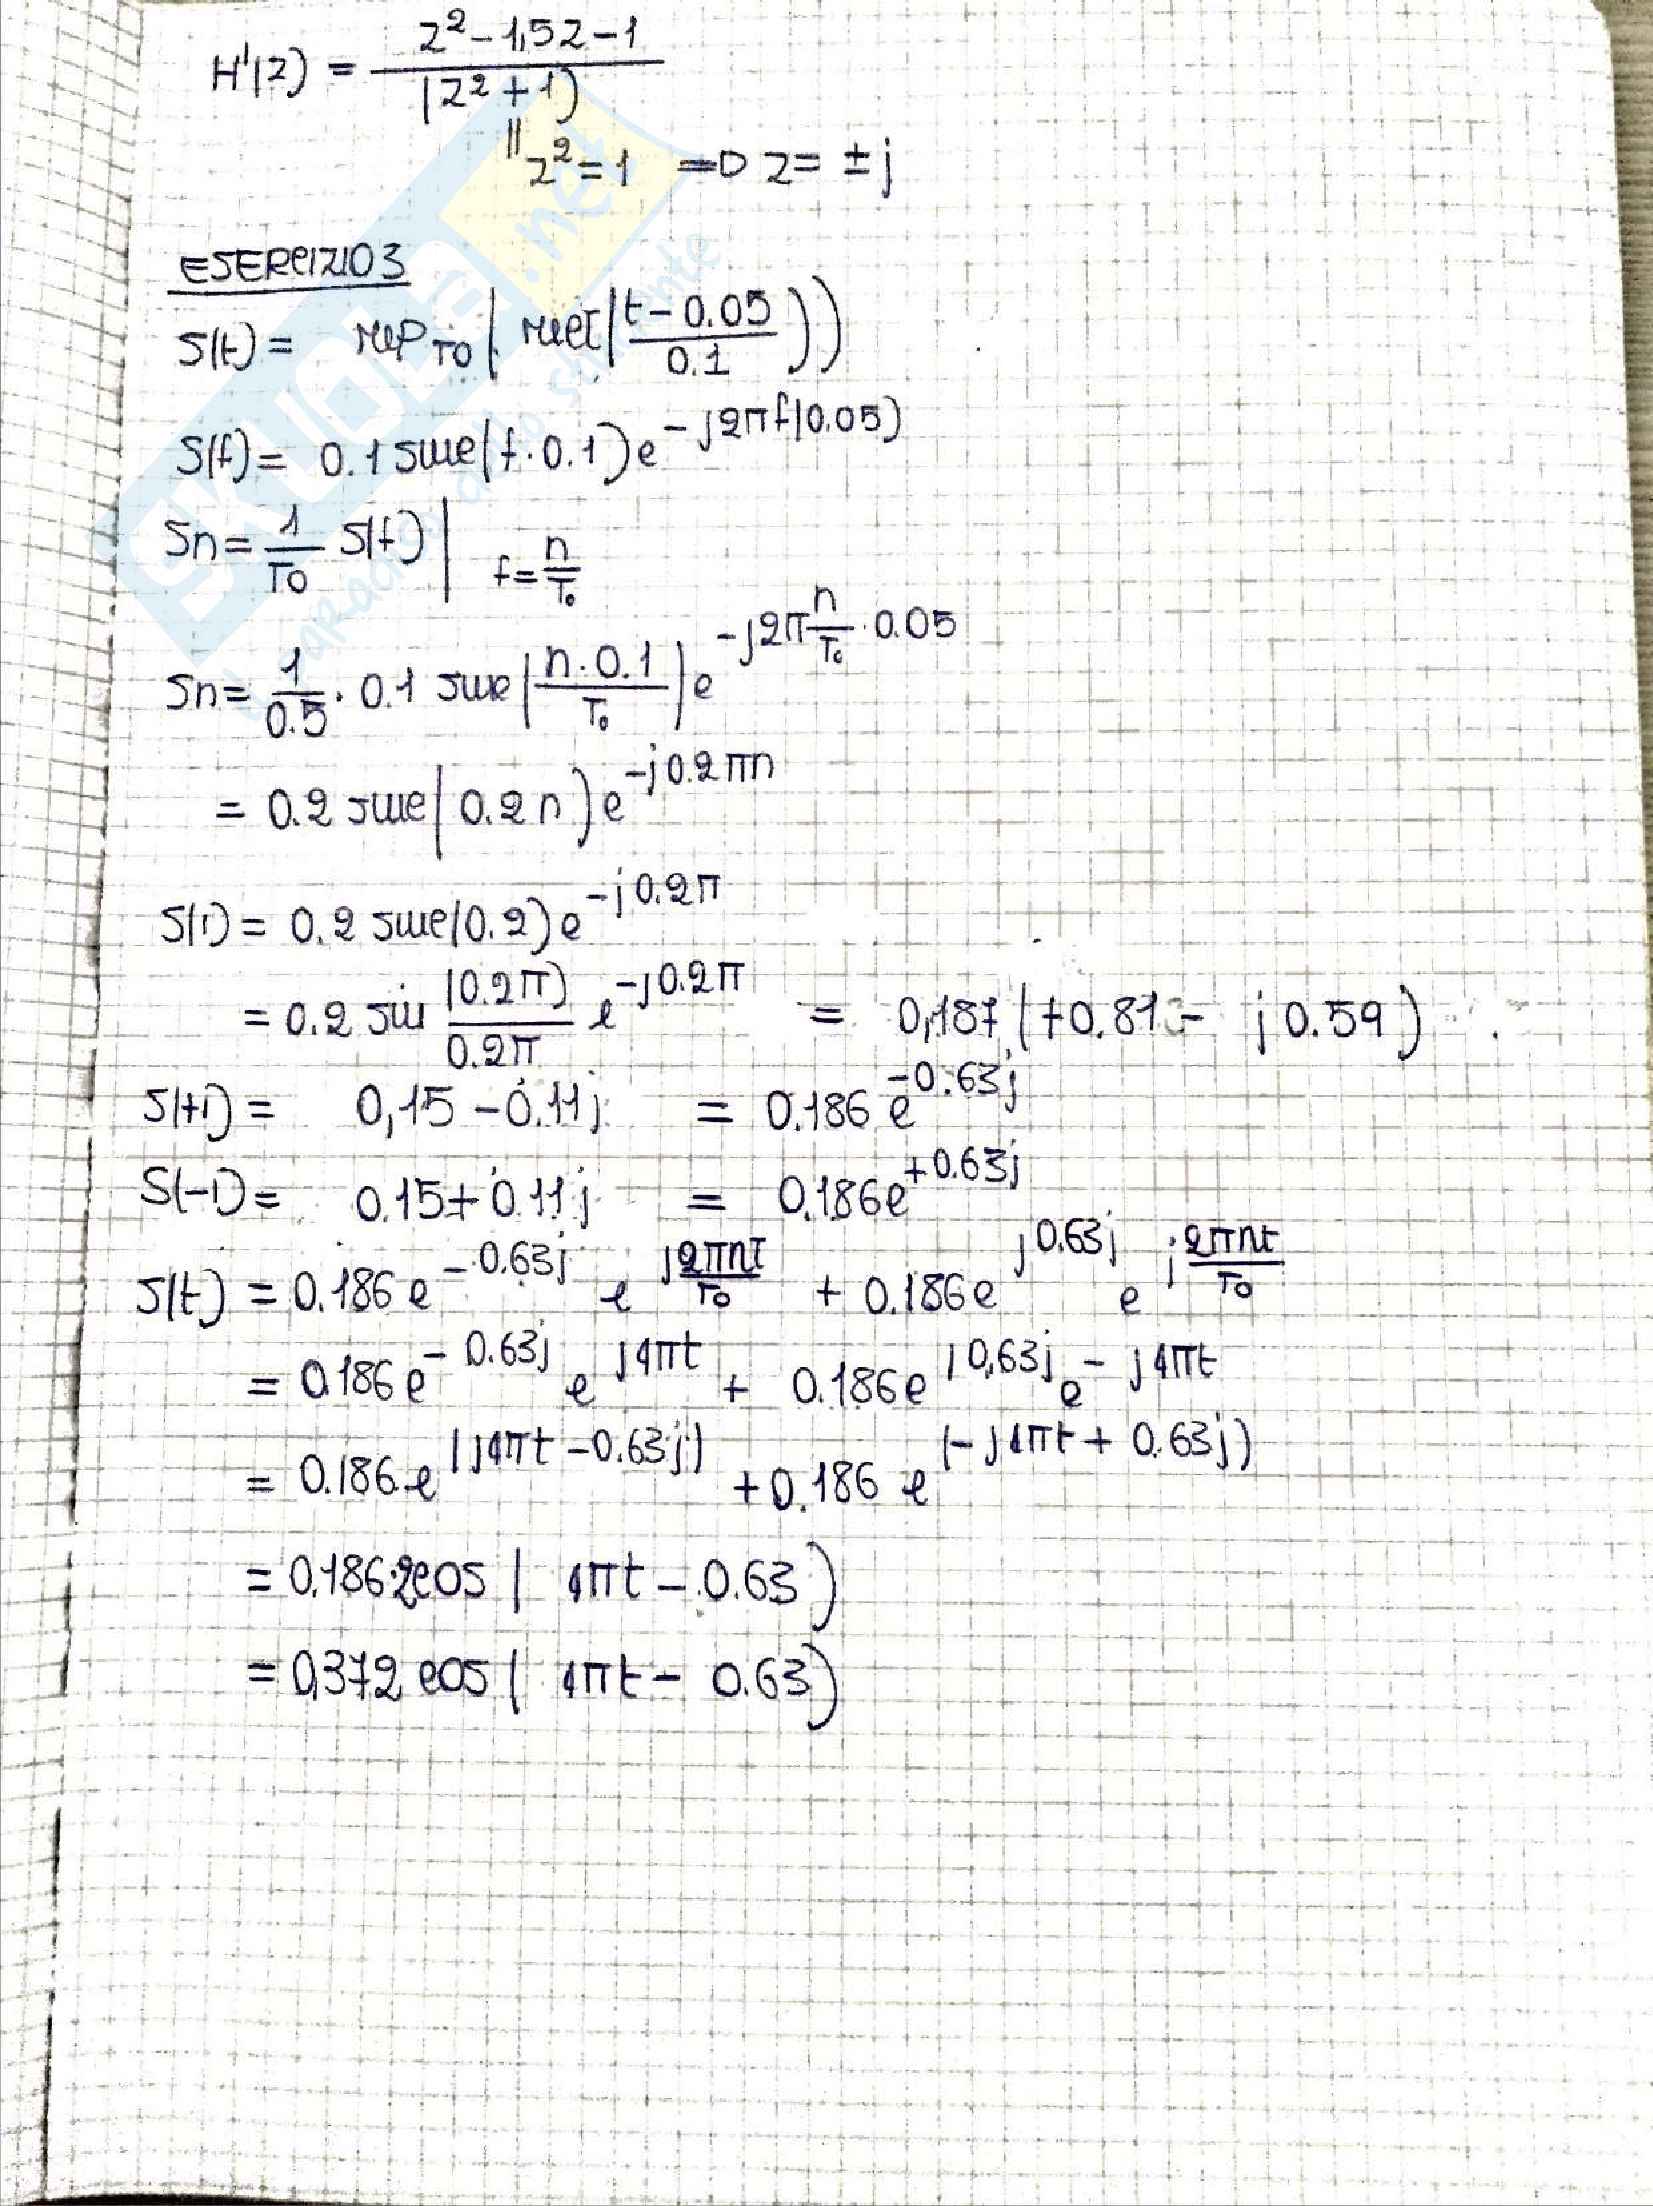 H'(z) = z² - 1,5z - 1 / (z² + 1)
|| z² = 1 => z = ± j
ESERCIZIO 3
S(t) = rep T0 ( rect ( t - 0.05 / 0.1 ) )
S(f) = 0.1 sinc (f · 0.1) e^(-j2πf(0.05))
Sn = 1/T0 S(f) | f = n/T0
Sn = 1/0.5 · 0.1 sinc ( n · 0.1 / T0 ) e^(-j2π n/T0 · 0.05)
= 0.2 sinc ( 0.2 n ) e^(-j0.2πn)
S(1) = 0.2 sinc (0.2) e^(-j0.2π)
= 0.2 sin (0.2π) / 0.2π e^(-j0.2π) = 0,187 ( +0.81 - j 0.59 )
S(+1) = 0,15 - 0.11j = 0.186 e^(-0.63j)
S(-1) = 0.15 + 0.11j = 0.186 e^(+0.63j)
S(t) = 0.186 e^(-0.63j) e^(j 2πnt/T0) + 0.186 e^(j0.63j) e^(j 2πnt/T0)
= 0.186 e^(-0.63j) e^(j4πt) + 0.186 e^(j0,63j) e^(-j4πt)
= 0.186 e^(j4πt - 0.63j) + 0.186 e^(-j4πt + 0.63j)
= 0.186·2cos ( 4πt - 0.63 )
= 0,372 cos ( 4πt - 0.63 )
SKUOLA.net